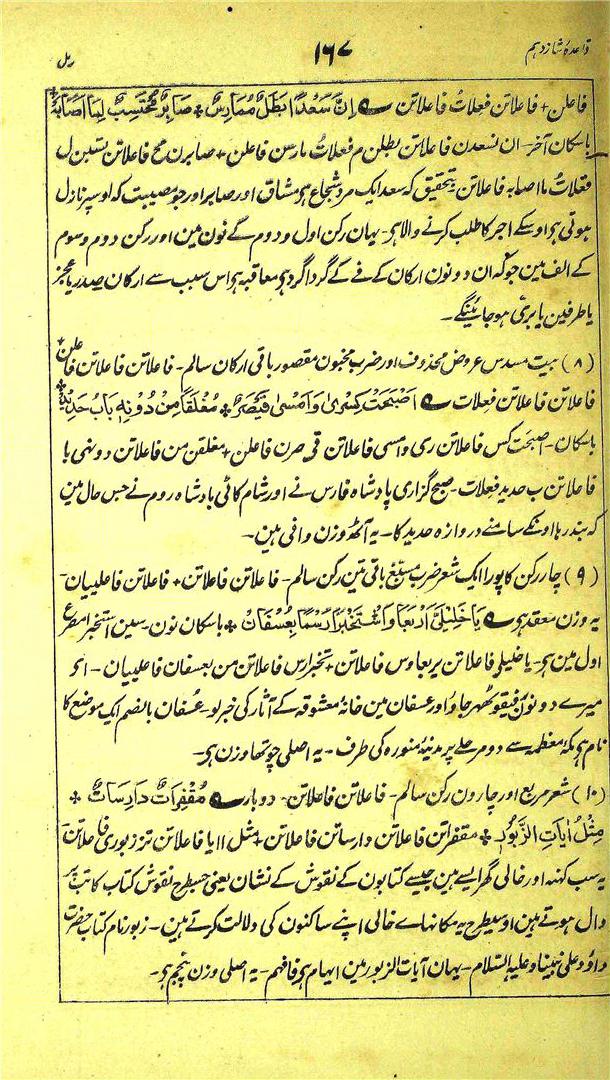 قاعدۂ شانزدہم ۱۶۷ رمل
فاعلن + فاعلاتن فعلاتُ فاعلاتن ؎ اِنَّ سَعْدًا بَطَلٌ مُمَارِسٌ * صَابِرٌ مُحْتَسِبٌ لِمَا اَصَابَهٗ
باسکان آخر - ان نسعدن فاعلاتن بطلن م فعلات مارسن فاعلن + صابرن مح فاعلاتن تسبن ل
فعلات ما اصابہ فاعلاتن بتحقیق کہ سعد ایک مرد شجاع ہی مشاق اور صابر اور جو مصیبت کہ اوسپر نازل
ہوتی ہی اوسکے اجر کا طلب کرنے والا ہی - یہان رکن اول و دوم کے نون مین اور رکن دوم و سوم
کے الف مین جو کہ ان دونون ارکان کے فے کے گرداگرد ہی معاقبہ ہی اس سبب سے ارکان صدر یا عجز
یا طرفین یا بری ہو جائینگے -
(۸) بیت مسدس عروض محذوف اور ضرب مخبون مقصور باقی ارکان سالم - فاعلاتن فاعلاتن فاعلن +
فاعلاتن فاعلاتن فعلات ؎ اَصْبَحَتْ كِسْرٰى وَاَمْسٰى قَيْصَرٌ * مُغْلَقًا مِنْ دُوْنِهٖ بَابُ حَدِيْد *
باسکان - اصبحت کس فاعلاتن ری وامسی فاعلاتن قی صرن فاعلن + مغلقن من فاعلاتن دونہی با
فاعلاتن ب حدید فعلات - صبح گزاری پادشاہ فارس نے اور شام کاٹی بادشاہ روم نے جس حال مین
کہ بند رہا اونکے سامنے دروازہ حدید کا - یہ آٹھ وزن وافی ہین -
(۹) چار رکن کا پورا ایک شعر ضرب مسبّغ باقی تین رکن سالم - فاعلاتن فاعلاتن + فاعلاتن فاعلییان -
یہ وزن معقد ہو ؎ يَا خَلِيْلَيَّ اَرْبَعَا وَاسْتَخْبِرَا رَسْمًا بِعُسْفَانْ * باسکان نون - سین استخبرا مصرع
اول مین ہی - یا خلیلی فاعلاتن یربعا وس فاعلاتن + تخبرارس فاعلاتن من بعسفان فاعلییان - ای
میرے دونون رفیقو ٹھہر جاؤ اور عسفان مین خانہ معشوقہ کے آثار کی خبر لو - عُسفان بالضم ایک موضع کا
نام ہی مکۂ معظمہ سے دو مرحلے پر مدینۂ منورہ کی طرف - یہ اصلی چوتھا وزن ہی -
(۱۰) شعر مربع اور چارون رکن سالم - فاعلاتن فاعلاتن - دو بار ؎ مُقْفِرَاتٌ دَارِسَاتٌ *
مِثْلُ اٰيَاتِ الزَّبُوْرِ * مقفراتن فاعلاتن دارساتن فاعلاتن + مثل اایا فاعلاتن تززبوری فاعلاتن
یہ سب کہنہ اور خالی گھر ایسے ہین جیسے کتابون کے نقوش کے نشان یعنی جسطرح نقوش کتاب کاتب پر
دال ہوتے ہین اوسیطرح یہ مکانہاے خالی اپنے ساکنون کی دلالت کرتے ہین - زبور نام کتاب حضرت
داؤد علی نبینا و علیہ السلام - یہان آیات الزبور مین ایہام ہی فافہم - یہ اصلی وزن پنجم ہی -